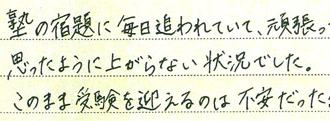 塾の宿題に毎日追われていて、頑張っ
思ったように上がらない状況でした。
このまま受験を迎えるのは不安だった